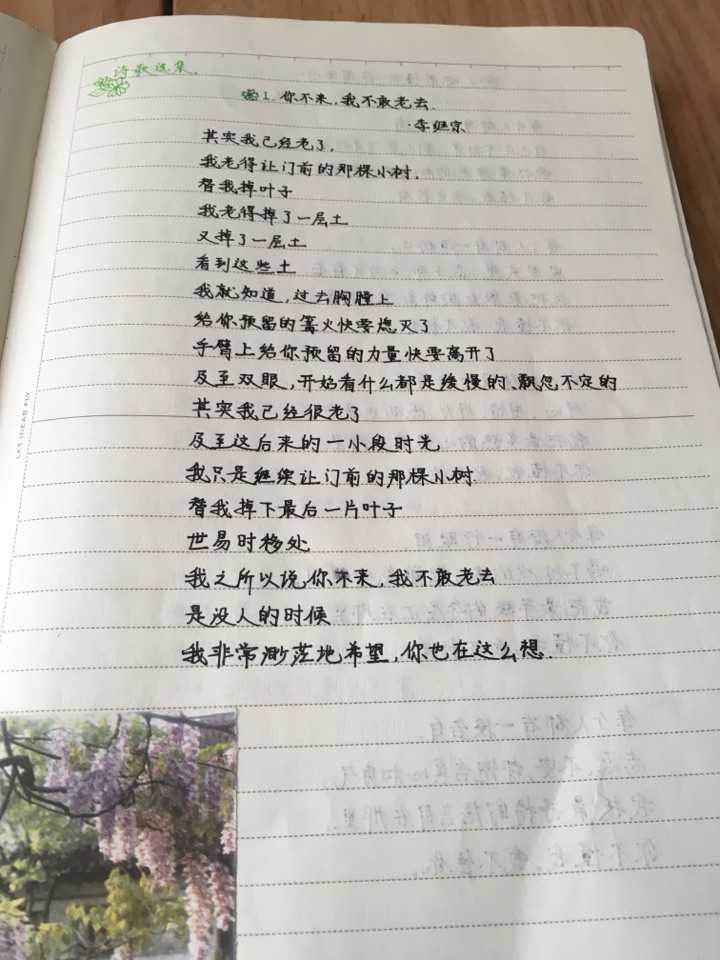 诗歌选集.
1. 你不来,我不敢老去.
·李继宗
其实我已经老了,
我老得让门前的那棵小树,
替我掉叶子
我老得掉了一层土
又掉了一层土
看到这些土
我就知道,过去胸膛上
给你预留的篝火快要熄灭了
手臂上给你预留的力量快要离开了
及至双眼,开始看什么都是缓慢的、飘忽不定的
其实我已经很老了
及至这后来的一小段时光
我只是继续让门前的那棵小树
替我掉下最后一片叶子
世易时移处
我之所以说,你不来,我不敢老去
是没人的时候
我非常渺茫地希望,你也在这么想.